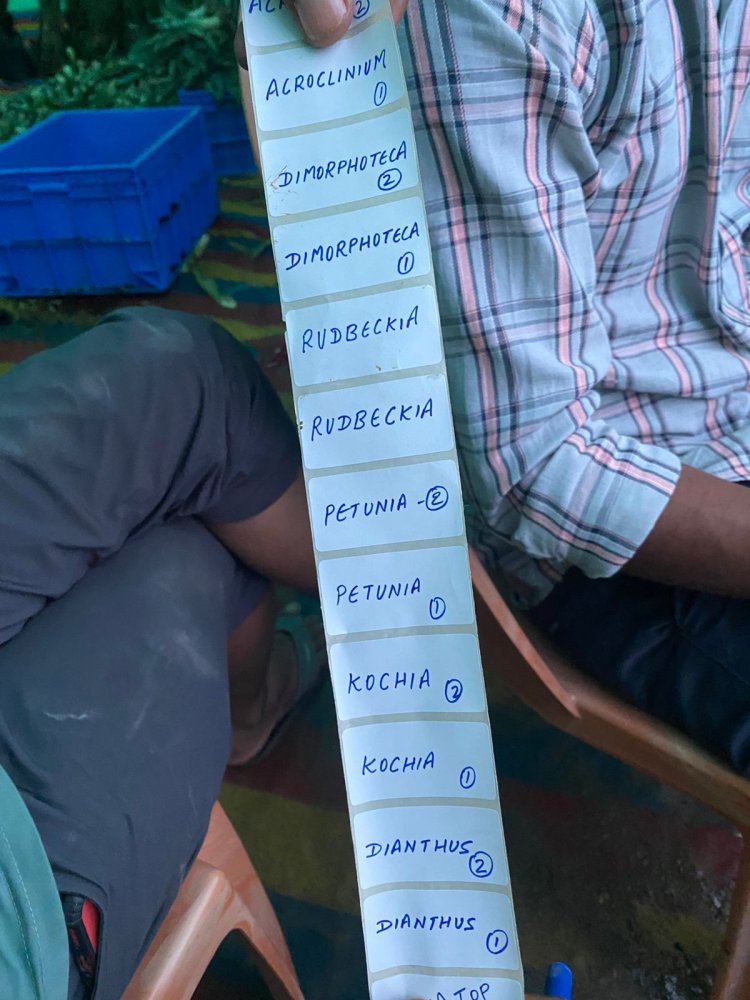 ②
ACROCLINIUM
①
DIMORPHOTECA
②
DIMORPHOTECA
①
RUDBECKIA
RUDBECKIA
PETUNIA -②
PETUNIA
①
KOCHIA ②
KOCHIA
①
DIANTHUS
②
DIANTHUS
①
TOP